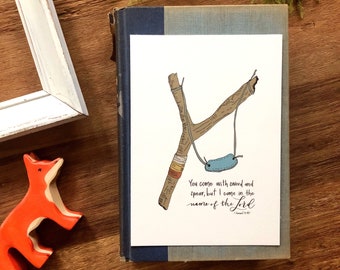 You come with sword and
spear, but I come in the
name of the Lord